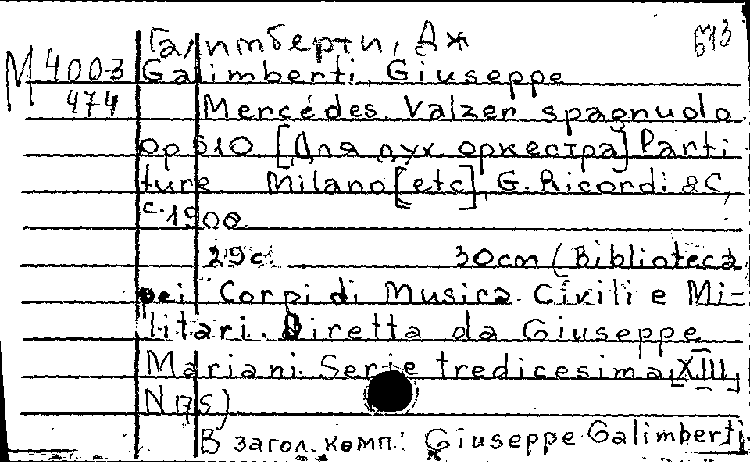 Галимберти, Дж
М 4003 Galimberti, Giuseppe
474 Mercédes. Valzer spagnuolo
op 610 [Для дух оркестра] Parti
ture Milano [etc], G. Ricordi & C,
c. 1900
29 c 30cm (Biblioteca
pei Corpi di Musica Civili e Mi-
litari. Diretta da Giuseppe
Mariani. Serie tredicesima [XIII]
N 175)
В загол. комп.: Giuseppe Galimberti